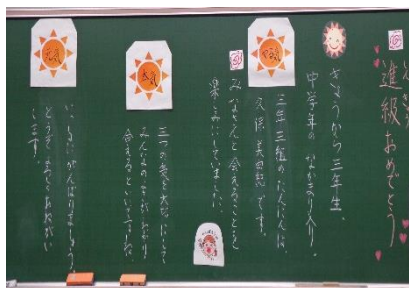 進級おめでとう
きょうから三年生。
中学年のなかま入り。
やる気
三年三組のたんにんは、
久保です。
みなさんと会えることを
楽しみにしていました。
三つの気を大切にして
みんなの
合えるといいですね。
元気
いっしょにがんばりましょう。
どうぞよろしくおねがい
します。